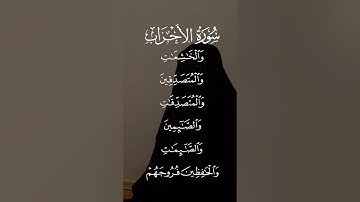 سُورَةُ الأَحْزَابِ
وَالْخَٰشِعَٰتِ
وَالْمُتَصَدِّقِينَ
وَالْمُتَصَدِّقَٰتِ
وَالصَّٰٓئِمِينَ
وَالصَّٰٓئِمَٰتِ
وَالْحَٰفِظِينَ فُرُوجَهُمْ